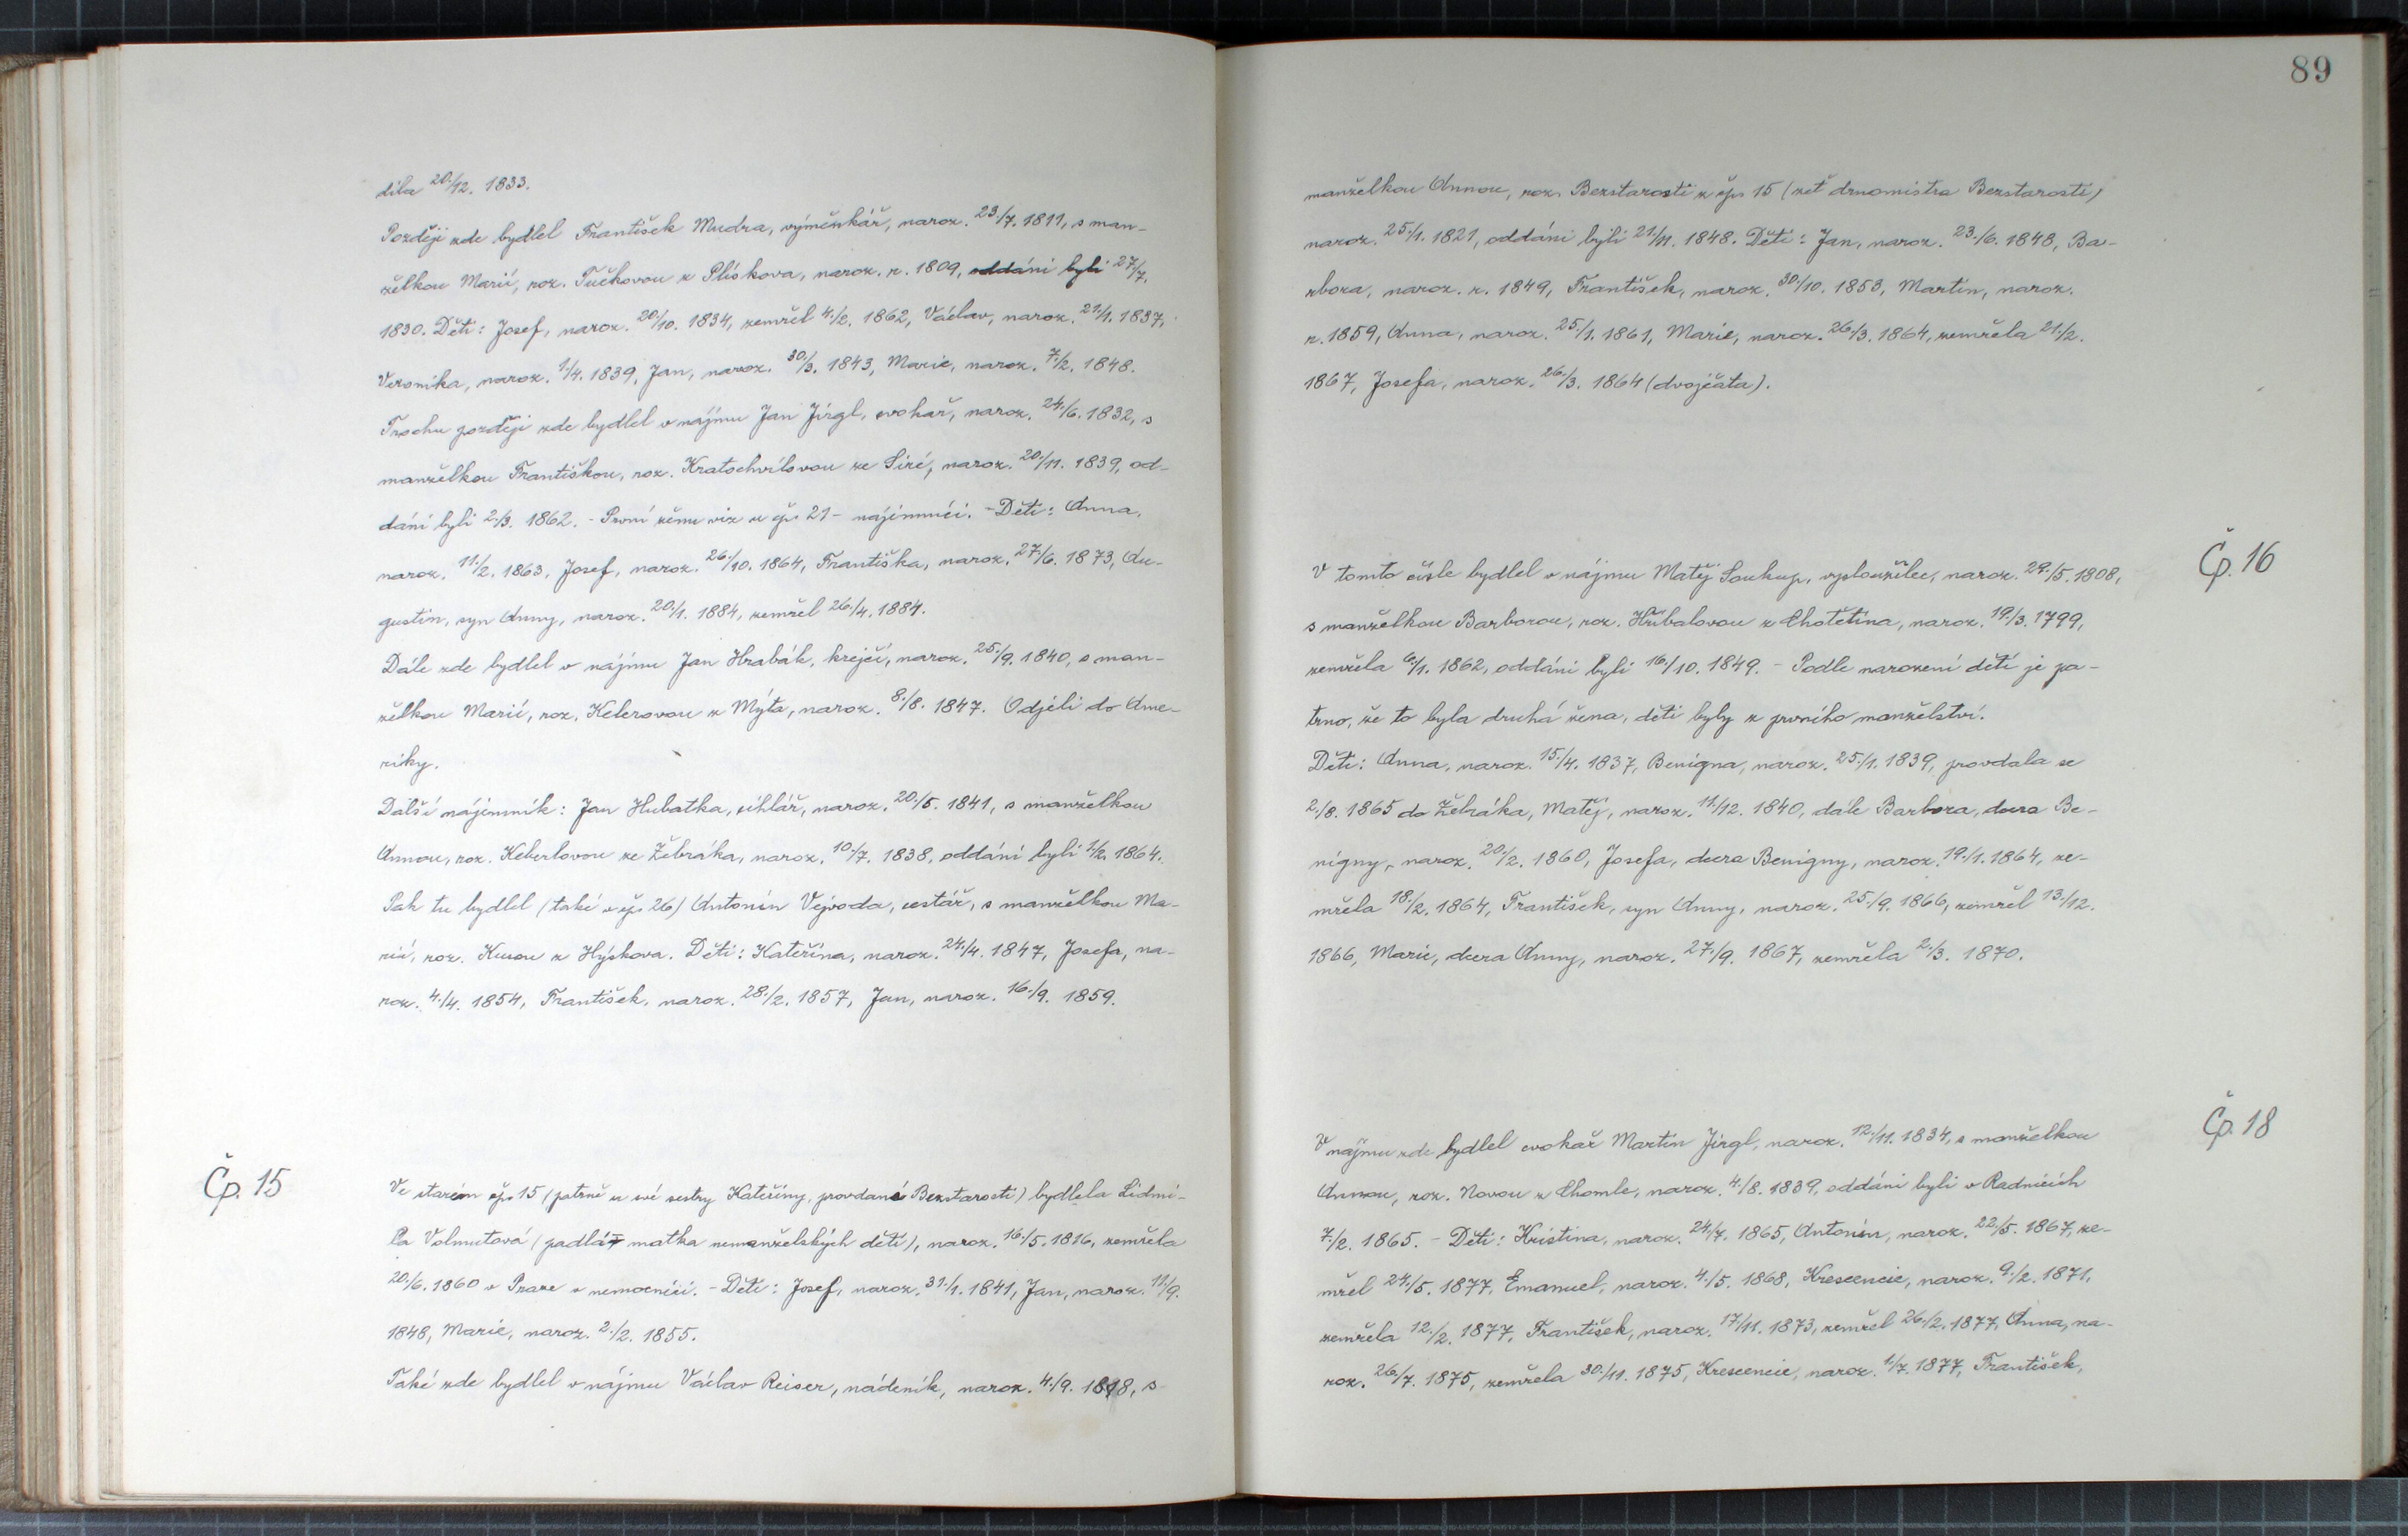 dila 20./12. 1833.
Později zde bydlel František Mudra, výměnkář, naroz. 23./7. 1811, s man-
želkou Marií, roz. Tučkovou z Plískova, naroz. r. 1809, oddáni byli 27/7.
1830. Děti: Josef, naroz. 20./10. 1834, zemřel 4./2. 1862, Václav, naroz. 21/1. 1837,
Veronika, naroz. 1./4. 1839, Jan, naroz. 30/3. 1843, Marie, naroz. 7./2. 1848.
Trochu později zde bydlel v nájmu Jan Jirgl, cvokař, naroz. 24./6. 1832, s
manželkou Františkou, roz. Kratochvílovou ze Siré, naroz. 20./11. 1839, od-
dáni byli 2./3. 1862. - První ženu viz u čp. 21 - nájemníci. - Děti: Anna,
naroz. 11./2. 1863, Josef, naroz. 26./10. 1864, Františka, naroz. 27./6. 1873, Au-
gustin, syn Anny, naroz. 20./1. 1884, zemřel 26./4. 1884.
Dále zde bydlel v nájmu Jan Hrabák, krejčí, naroz. 25./9. 1840, s man-
želkou Marií, roz. Kelerovou z Mýta, naroz. 8./8. 1847. Odjeli do Ame-
riky.
Další nájemník: Jan Hubatka, cihlář, naroz. 20./5. 1841, s manželkou
Annou, roz. Keberlovou ze Žebráka, naroz. 10./7. 1838, oddáni byli 2/2. 1864.
Pak tu bydlel (také v čp. 26) Antonín Vejvoda, cestář, s manželkou Ma-
rií, roz. z Hýskova. Děti: Kateřina, naroz. 24./4. 1847, Josefa, na-
roz. 4./4. 1854, František, naroz. 28./2. 1857, Jan, naroz. 16./9. 1859.
Čp. 15
Ve starém čp. 15 (patrně u své sestry Kateřiny, provdané Bezstarosti) bydlela Lidmi-
la Volmutová (padlá matka nemanželských dětí), naroz. 16./5. 1816, zemřela
20./6. 1860 v Praze v nemocnici. - Děti: Josef, naroz. 31./1. 1841, Jan, naroz. 11./9.
1848, Marie, naroz. 2./2. 1855.
Také zde bydlel v nájmu Václav Reiser, nádeník, naroz. 4./9. 1818, s
89
manželkou Annou, roz. Bezstarosti z čp. 15 (zeť drnomistra Bezstarosti)
naroz. 25./1. 1821, oddáni byli 21./11. 1848. Děti: Jan, naroz. 23./6. 1848, Ba-
rbora, naroz. r. 1849, František, naroz. 30./10. 1853, Martin, naroz.
r. 1859, Anna, naroz. 25./1. 1861, Marie, naroz. 26./3. 1864, zemřela 21./2.
1867, Josefa, naroz. 26./3. 1864 (dvojčata).
Čp. 16
V tomto čísle bydlel v nájmu Matěj Soukup, vysloužilec, naroz. 29./5. 1808,
s manželkou Barborou, roz. Hřibalovou z Chotětína, naroz. 19./3. 1799,
zemřela 6./1. 1862, oddáni byli 16./10. 1849. - Podle narození dětí je pa-
trno, že to byla druhá žena, děti byly z prvního manželství.
Děti: Anna, naroz. 15./4. 1837, Benigna, naroz. 25./1. 1839, provdala se
2./8. 1865 do Žebráka, Matěj, naroz. 11./12. 1840, dále Barbora, dcera Be-
nigny, naroz. 20./2. 1860, Josefa, dcera Benigny, naroz. 19./1. 1864, ze-
mřela 18./2. 1864, František, syn Anny, naroz. 25./9. 1866, zemřel 13./12.
1866, Marie, dcera Anny, naroz. 27./9. 1867, zemřela 2./3. 1870.
Čp. 18
V nájmu zde bydlel cvokař Martin Jirgl, naroz. 12./11. 1834, s manželkou
Annou, roz. Novou z Chomle, naroz. 4./8. 1839, oddáni byli v Radnicích
7./2. 1865. - Děti: Kristina, naroz. 24./7. 1865, Antonín, naroz. 22./5. 1867, ze-
mřel 24./5. 1877, Emanuel, naroz. 4./5. 1868, Krescencie, naroz. 9./2. 1871,
zemřela 12./2. 1877, František, naroz. 17./11. 1873, zemřel 26./2. 1877, Anna, na-
roz. 26./7. 1875, zemřela 30./11. 1875, Krescencie, naroz. 1./7. 1877, František,